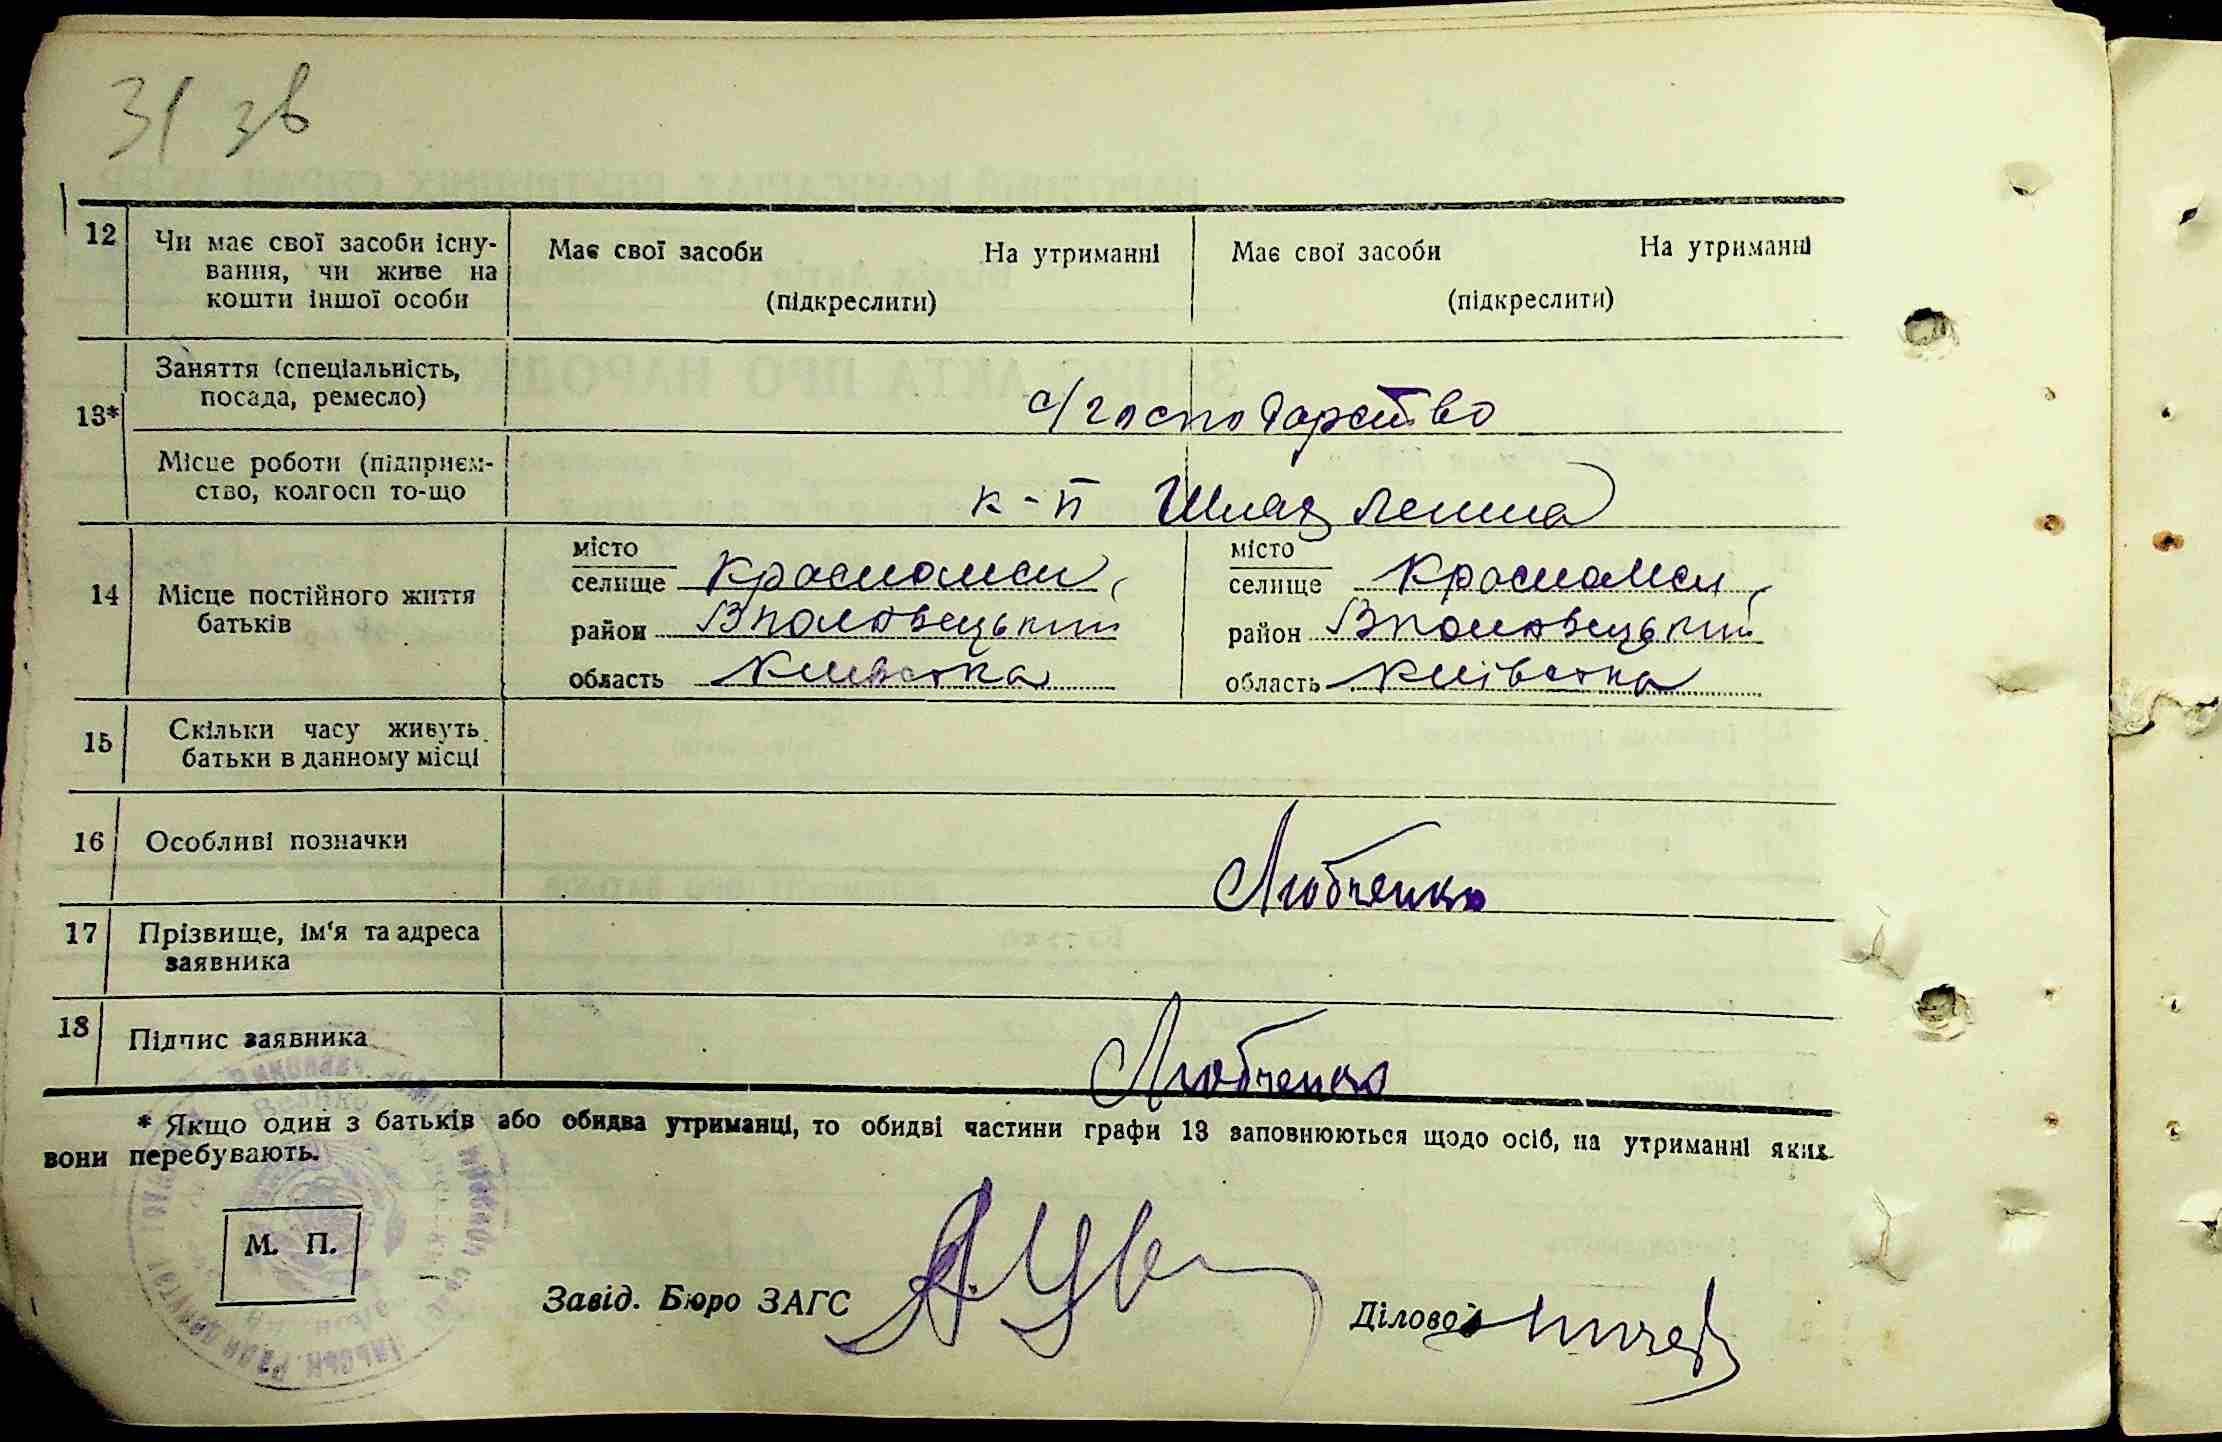 31 зв
12 Чи має свої засоби існу-
вання, чи живе на
кошти іншої особи
Має свої засоби На утриманні
(підкреслити)
Має свої засоби На утриманні
(підкреслити)
13*
Заняття (спеціальність,
посада, ремесло)
с/господарство
Місце роботи (підприєм-
ство, колгосп то-що
к-п Шлях Леніна
14 Місце постійного життя
батьків
місто
селище
район
область Київська
місто
селище
район
область Київська
15 Скільки часу живуть
батьки в данному місці
16 Особливі позначки
Любченко
17 Прізвище, ім'я та адреса
заявника
18 Підпис заявника
Любченко
* Якщо один з батьків або обидва утриманці, то обидві частини графи 13 заповнюються щодо осіб, на утриманні яких
вони перебувають.
М. П.
Завід. Бюро ЗАГС
Діловод